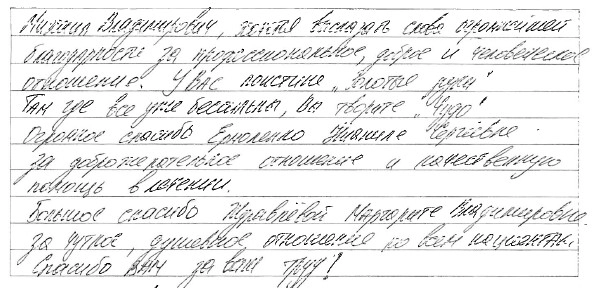 Михаил Владимирович, хотим высказать слова огромнейшей
благодарности за профессиональное, доброе и человеческое
отношение. У ВАС поистине "Золотые руки"
Там где все уже бессильны, Вы творите "Чудо"
Огромное спасибо Ермоленко Сергеевне
за доброжелательное отношение и качественную
помощь в лечении.
Большое спасибо Журавлёвой Маргарите Владимировне
за чуткое, душевное, отношение ко всем пациентам.
Спасибо ВАМ за ваш труд!